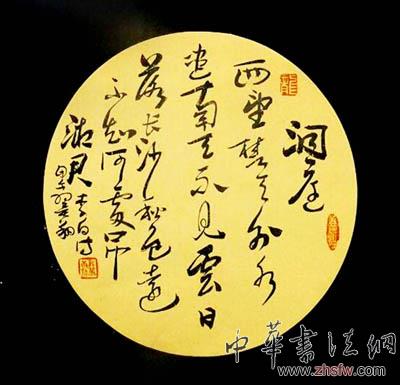 洞庭
西望楚江分水
盡南天不見雲日
落長沙秋色遠
不知何處吊
湘君 李白詩
中華書法網
www.zhsfw.com